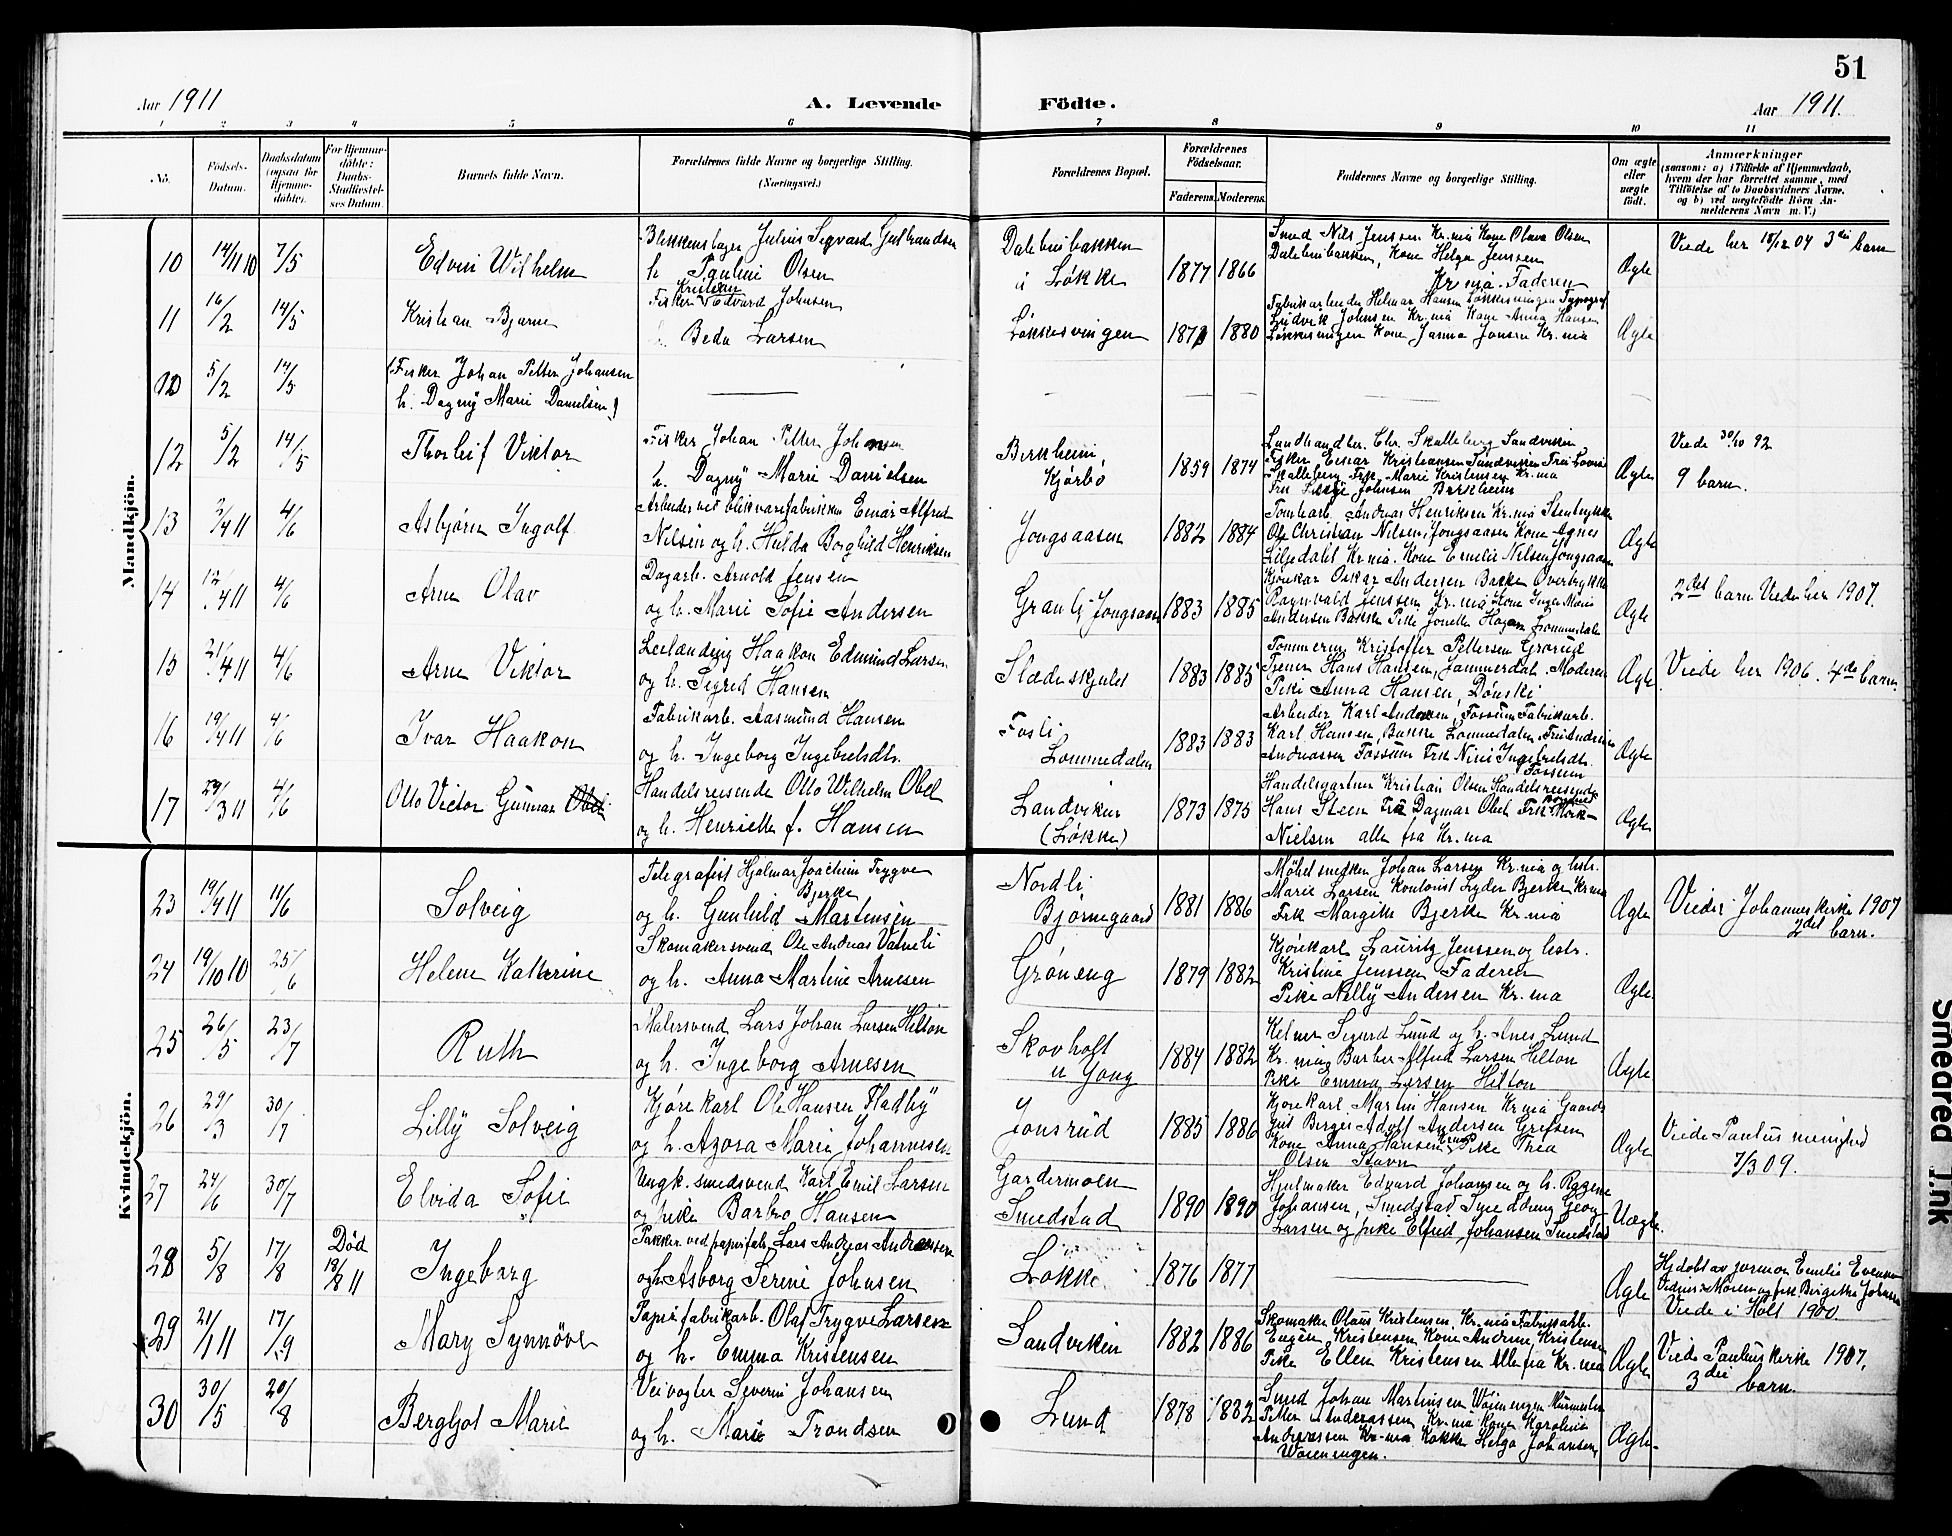 51
Aar 1911
A. Levende Födte.
Aar 1911.
1 2 3 4 5 6 7 8 9 10 11
No.
Födsels-
Datum.
Daabsdatum
(ogsaa for
Hjemme-
döbte).
For Hjemme-
döbte:
Daabs-
Stadfæstel-
ses Datum.
Barnets fulde Navn.
Forældrenes fulde Navne og borgerlige Stilling.
(Næringsvei.)
Forældrenes Bopæl.
Forældrenes
Födselsaar.
Faderens. Moderens.
Faddernes Navne og borgerlige Stilling.
Om ægte
eller
uægte
födt.
Anmærkninger
(saasom: a) i Tilfælde af Hjemmedaab,
hvem der har forrettet samme, med
Tilföielse af to Daabsvidners Navne,
og b) ved uægtefödte Börn An-
melderens Navn m. V.)
Mandkjön.
10 14/11 10 7/5 Edvin Wilhelm
Blikkenslager Julius Sigvard Gulbrandsen
h. Pauline Olsen
Dalebubakken
i Løkke
1877 1866
Smed Nils Jenssen Kr.nia Kone Olava Olsen
Dalebubakken, Kone Helga Jenssen
Kr.nia. Faderen
Ægte
Viede her 18/12 04 3die barn
11 16/2 14/5 Kristian Bjarne
Fisker Kristian Edvard Johnsen
Beda Larsen
Løkkesvingen
187 1880
Fabrikarbeider Helmar Hansen Løkkesvingen Typograf
Ludvik Johnsen Kr.nia Kone Anna Hansen
Løkkesvingen Kone Janna Jonsen Kr.nia
Ægte
5/2 14/5 (Fisker Johan Petter Johansen
h. Dagny Marie Danielsen)
12 5/2 14/5 Thorleif Viktor
Fisker Johan Petter Johansen
h. Dagny Marie Danielsen
Birkheim
Kjørbo
1859 1874
Landhandler Chr. Skalleberg Sandviken
Fisker Einar Kristiansen Sandviken Frø Lovise
Skalleberg Frk Marie Kristensen Kr.nia
Johnsen Birkheim
Ægte
Viede 30/10 92
9 barn.
13 2/4 11 4/6 Asbjørn Ingolf
Arbeider ved blikvarefabrikken Einar Alfred
Nilsen og h. Hulda Borghild Henriksen
Jongsaasen
1882 1884
Tomtearb. Andreas Henriksen Kr.nia Stentrykker
Ole Christian Nilsen, Jongsaasen Kone Agnes
Liljedahl Kr.nia. Kone Emilie Nilsen Jongsaasen
Ægte
14 12/4 11 4/6 Arne Olav
Dagarb. Arnold Jensen
og h. Marie Sofie Andersen
Granli, Jongsaasen
1883 1885
Kjørekar Oskar Andersen Bakke Overtrykker
Ragnvald Jenssen Kr.nia Kone Inger Marie
Andersen Bakke Pike Jonette Hagen Lommedalen
Ægte
2det barn Viede her 1907.
15 21/4 11 4/6 Arne Viktor
Leilænding Haakon Edmund Larsen
og h. Sigrid Hansen
Slædeskjulet
1883 1885
Tømmerm. Kristoffer Pettersen Grorud
Tjener Hans Hansen, Jammerdal. Moderen
Pike Anna Hansen, Dønski
Ægte
Viede her 1906. 4de barn.
16 19/4 11 4/6 Ivar Haakon
Fabrikarb. Aasmund Hansen
og h. Ingeborg Ingebretsdtr.
Fosli
Lommedalen
1883 1883
Arbeider Karl Andersen, Fossum Fabrikarb.
Karl Hansen, Bakke Lommedalen,
Andreassen Fossum Frk Nini Ingebretsdtr.
Fossum
Ægte
17 29/3 11 4/6 Otto Victor Gunnar Obel
Handelsreisende Otto Wilhelm Obel
og h. Henriette f. Hansen
Sandviken
(Løkke)
1873 1875
Handelsgartner Kristian Olsen Handelsreisende
Hans Steen Fru Dagmar Obel Frk Mørk-
Nielsen alle fra Kr.nia
Ægte
Kvindekjön.
23 19/4 11 11/6 Solveig
Telegrafist Hjalmar Joachim Trygve
Bjerke
og h. Gunhild Martensen
Nordli
Bjørnegaard
1881 1886
Møbelsnedker Johan Larsen Kr.nia og hstr.
Marie Larsen Kontorist Lyder Bjerke Kr.nia
Frk Margithe Bjerke Kr.nia
Ægte
Viede i Johannes kirke 1907
2det barn.
24 19/10 10 25/6 Helene Katherine
Skomakersvend Ole Andreas Vatneli
og h. Anna Martine Arnesen
Grøneng
1879 1882
Kjørekarl Lauritz Jenssen og hstr.
Kristine Jenssen Faderen
Pike Nelly Andersen Kr.nia
Ægte
25 26/5 23/7 Ruth
Malersvend Lars Johan Larsen Hilton
og h. Ingeborg Arnesen
Skovholt
u Jong
1884 1882
Kelner Sigurd Lund og h. Anes Lund
Kr.nia Barber Alfred Larsen Hilton
Pike Emma Larsen Hilton
Ægte
26 29/3 30/7 Lilly Solveig
Kjørekarl Ole Hansen Fladby
og h. Azora Marie Johannesen
Jonsrud
1885 1886
Kjørekarl Martin Hansen Kr.nia Gaards
gut Birger Adolf Andersen Grefsen
Kone Anna Hansen Kr.nia Pike Thea
Olsen Stavn
Ægte
Viede Paulus menighed
7/3 09.
27 24/6 30/7 Elvida Sofie
Ungk. smedsvend Karl Emil Larsen
og pike Barbro Hansen
Gardermoen
Smedstad
1890 1890
Hjulmaker Edvard Johansen og h. Ragne
Johansen, Smedstad Smeddreng Georg
Larsen og pike Elfrid Johansen Smedstad
Uægte.
28 5/8 17/8 Død
19/8 11 Ingeborg
Pakker ved papirfab. Lars Andreas Andreassen
og h. Asborg Serine Johnsen
Løkke
1876 1877
Ægte
Hjdøbt av jormor Emilie Evensen
Vidner: Moren og frk Birgithe Johnsen
Viede i Holt 1900.
29 21/1 11 17/9 Mary Synnøve
Papirfabrikarb. Olaf Trygve Larsen
og h. Emma Kristensen
Sandviken
1882 1886
Skomaker Olaus Kristensen, Kr.nia Fabrikarb.
Eugen Kristensen Kone Andrine Kristensen
Pike Ellen Kristensen Alle fra Kr.nia
Ægte
Viede Paulus kirke 1907,
3die barn.
30 30/5 20/8 Bergljot Marie
Veivogter Severin Johansen
og h. Marie Trondsen
Lund
1878 1882
Smed Johan Martinsen Wøienengen Murmester
Petter Andreassen Kr.nia Kone Karoline
Andreassen Kr.nia Kokke Helga Johansen,
Wøienengen.
Ægte.
Smeared Ink